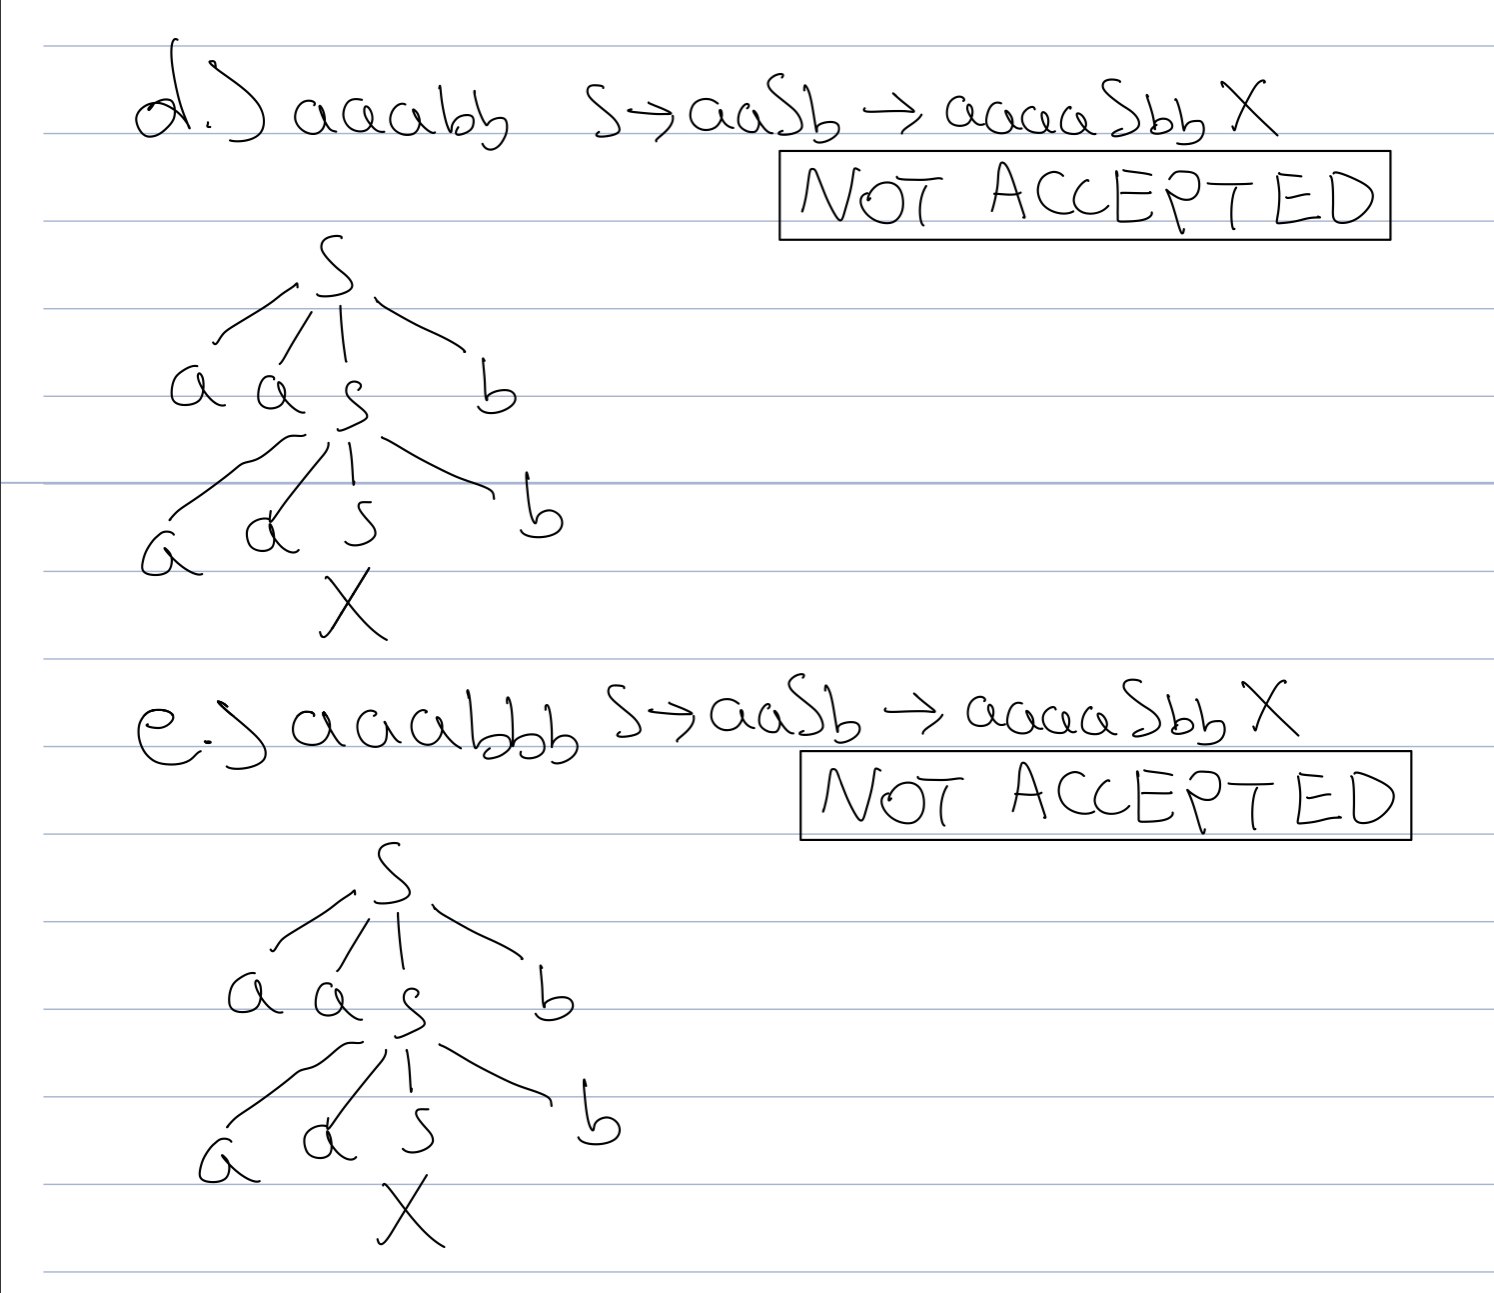 d.) aaabb S → aaSb → aaaaSbb X
NOT ACCEPTED
S
a a S b
a a S b
X
e.) aaabbb S → aaSb → aaaaSbb X
NOT ACCEPTED
S
a a S b
a a S b
X